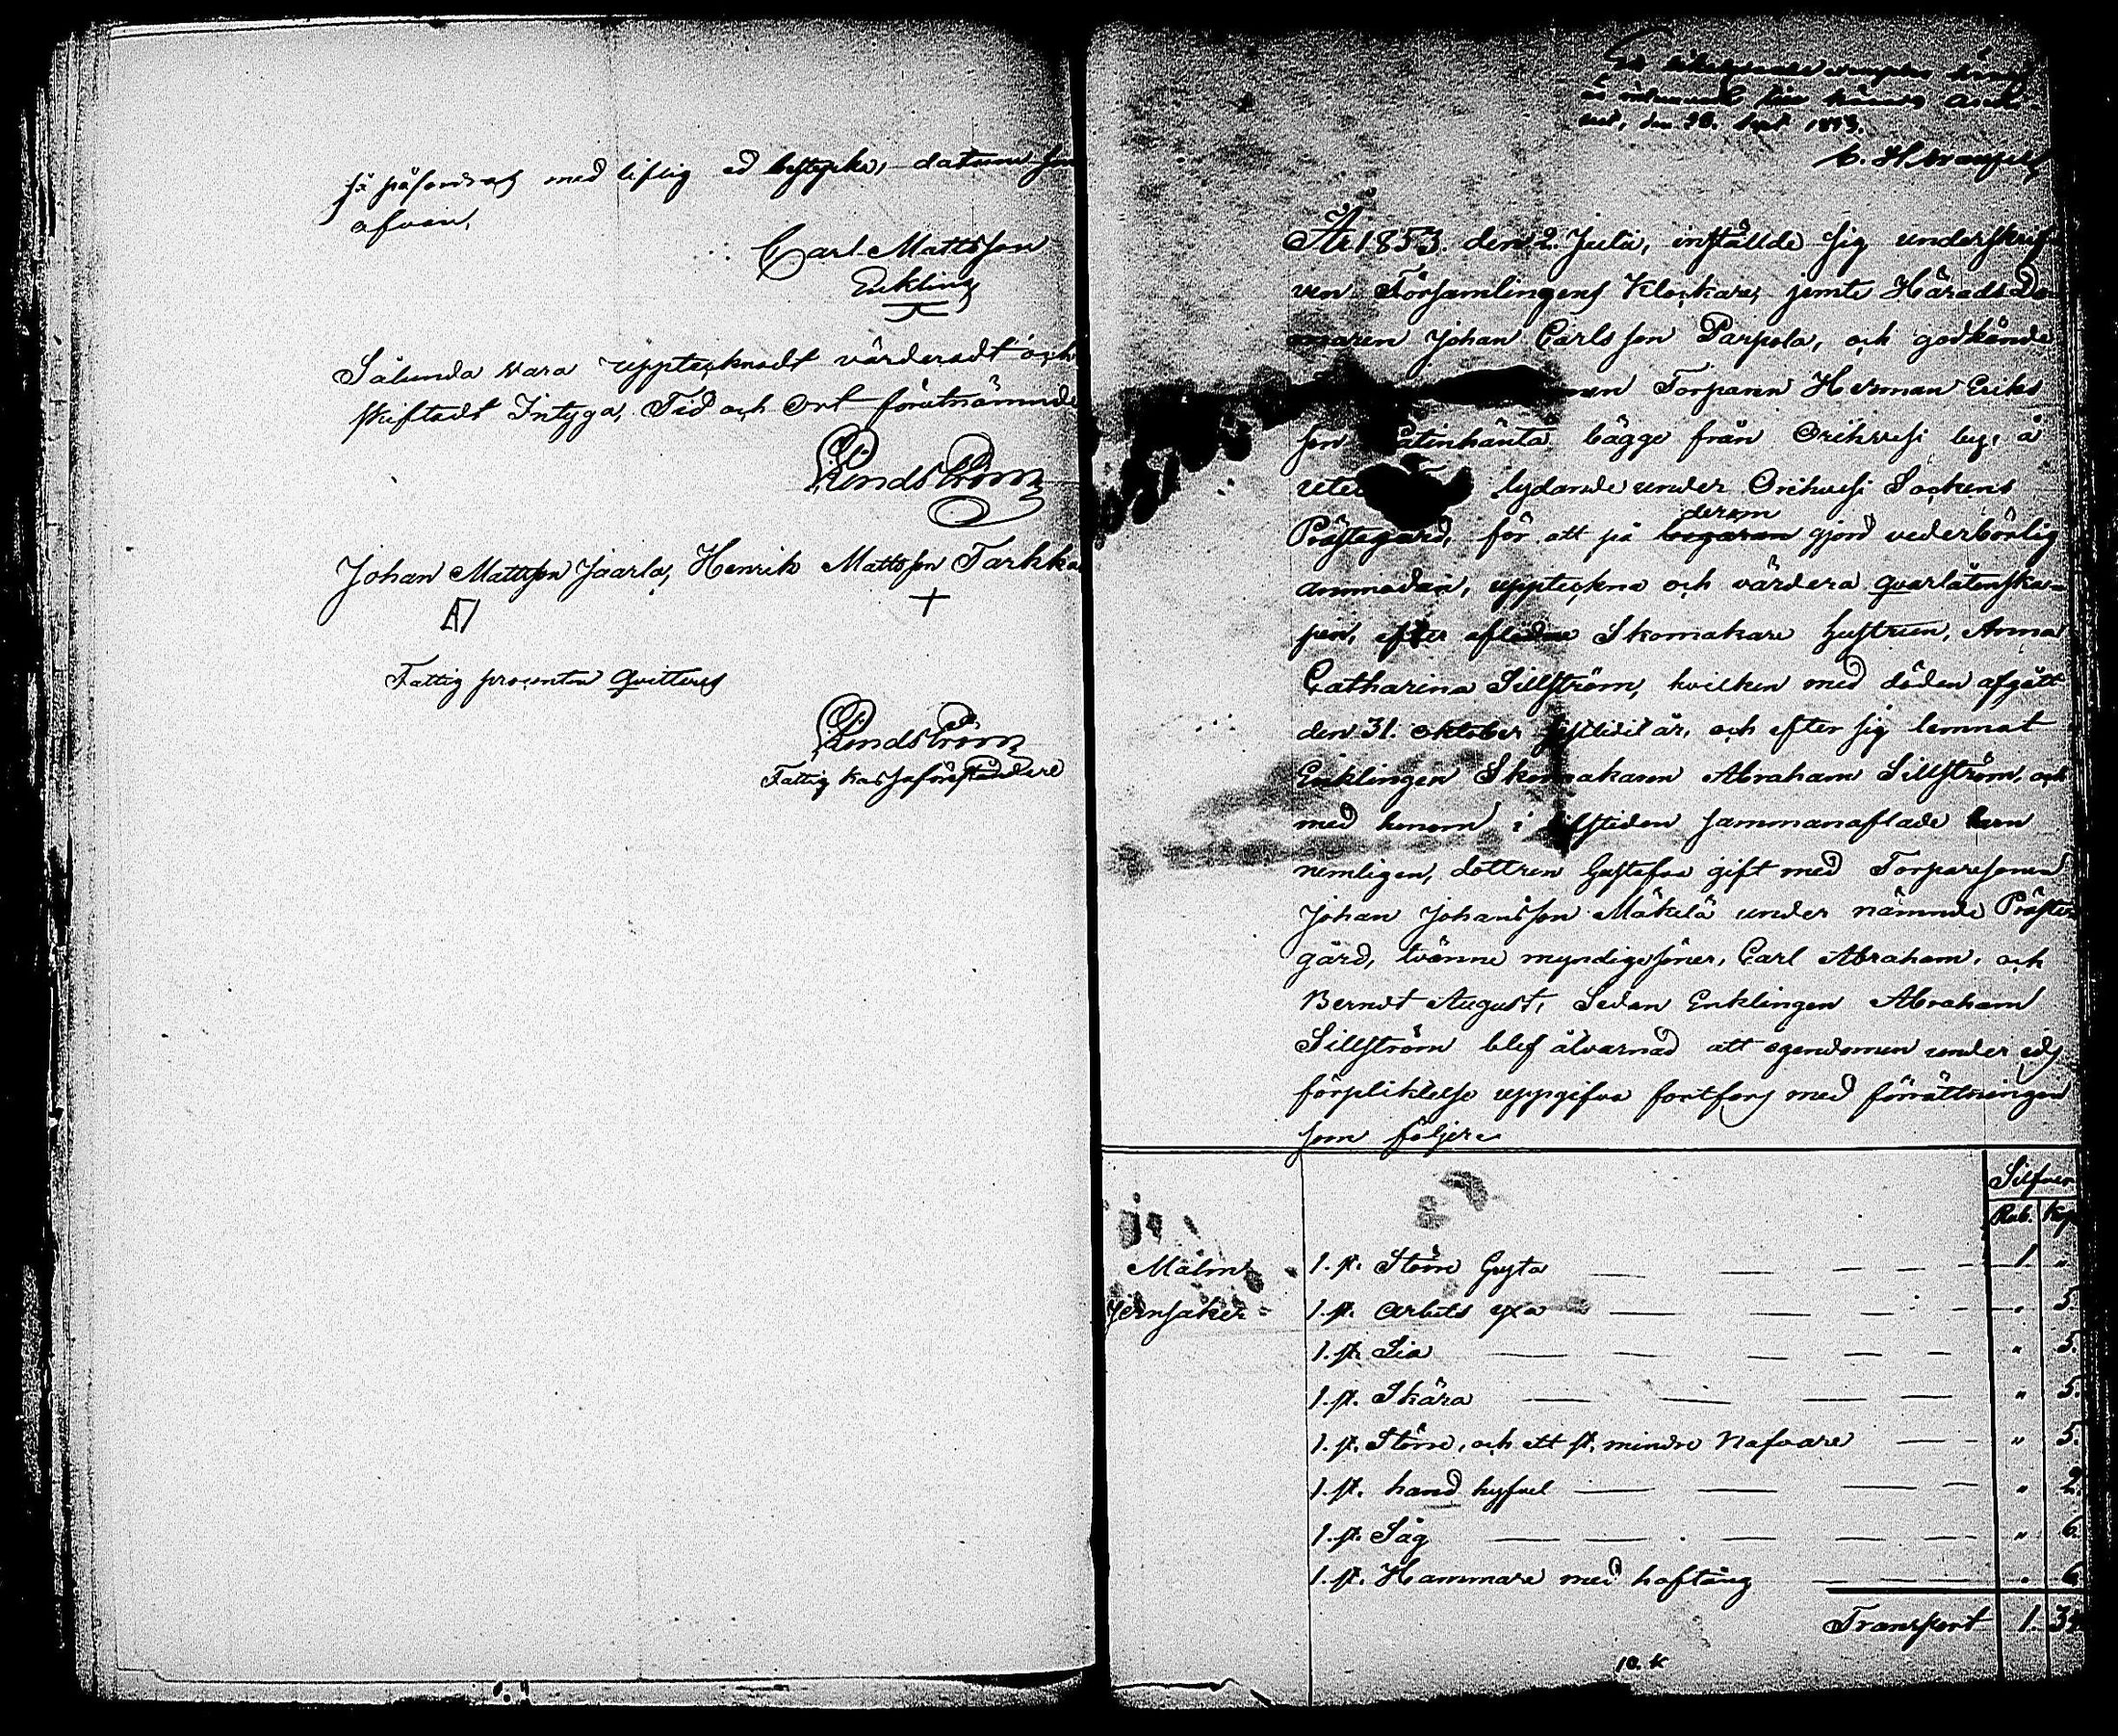 så påfordras med liflig ed bestyrka, datum som
ofvan,
Carl Mattsson
Enkling
Sålunda vara upptecknadt värderadt och
skiftadt Intyga, Tid och Ort förutnämnde
Lindström
Johan Mattsson Jaarla, Henrik Mattsson Tarkka
Fattig procenten qvitteras
Lindström
Fattig kassaföreståndare
den 28. Sept 1853.
År 1853. den 2. Julii, inställde sig underskrif-
ven Församlingens Klockare, jemte Härads Do-
maren Johan Carlsson Parpola, och godkände
Torparen Herman Eriks
son bägge från Orihvesi by, å
lydande under Orihvesi Sockens
derom
Prästegård, för att på begäran gjord vederbörlig
anmodan, uppteckna och värdera qvarlåtenska-
pen, efter aflidne Skomakare hustrun, Anna
Catharina Sillström, hvilken med döden afgått
den 31. oktober sistlidit år, och efter sig lemnat
Enklingen Skomakaren Abraham Sillström, och
med honom i lifstiden sammanaflade barn
nemligen, dottren Gustafva gift med Torparesonen
Johan Johansson Mäkelä under nämnde Präste-
gård, tvänne myndige söner, Carl Abraham, och
Berndt August, Sedan Enklingen Abraham
Sillström blef alvarnad att egendomen under eds
förpliktelse uppgifva fortfors med förrättningen
som följer:
Silfver
Rub. Kop
Malm 1. st. Större Gryta 1 "
Jernsaker 1. st. Arbets yxa " 5.
1. st. Lia " 5.
1. st. Skära " 5.
1. st. Större, och ett st. mindre Nafvare " 5.
1. st. hand hyfvel " 2.
1. st. Såg " 6.
1. st. Hammare med hoftång " 6
Transport 1. 34
10. k